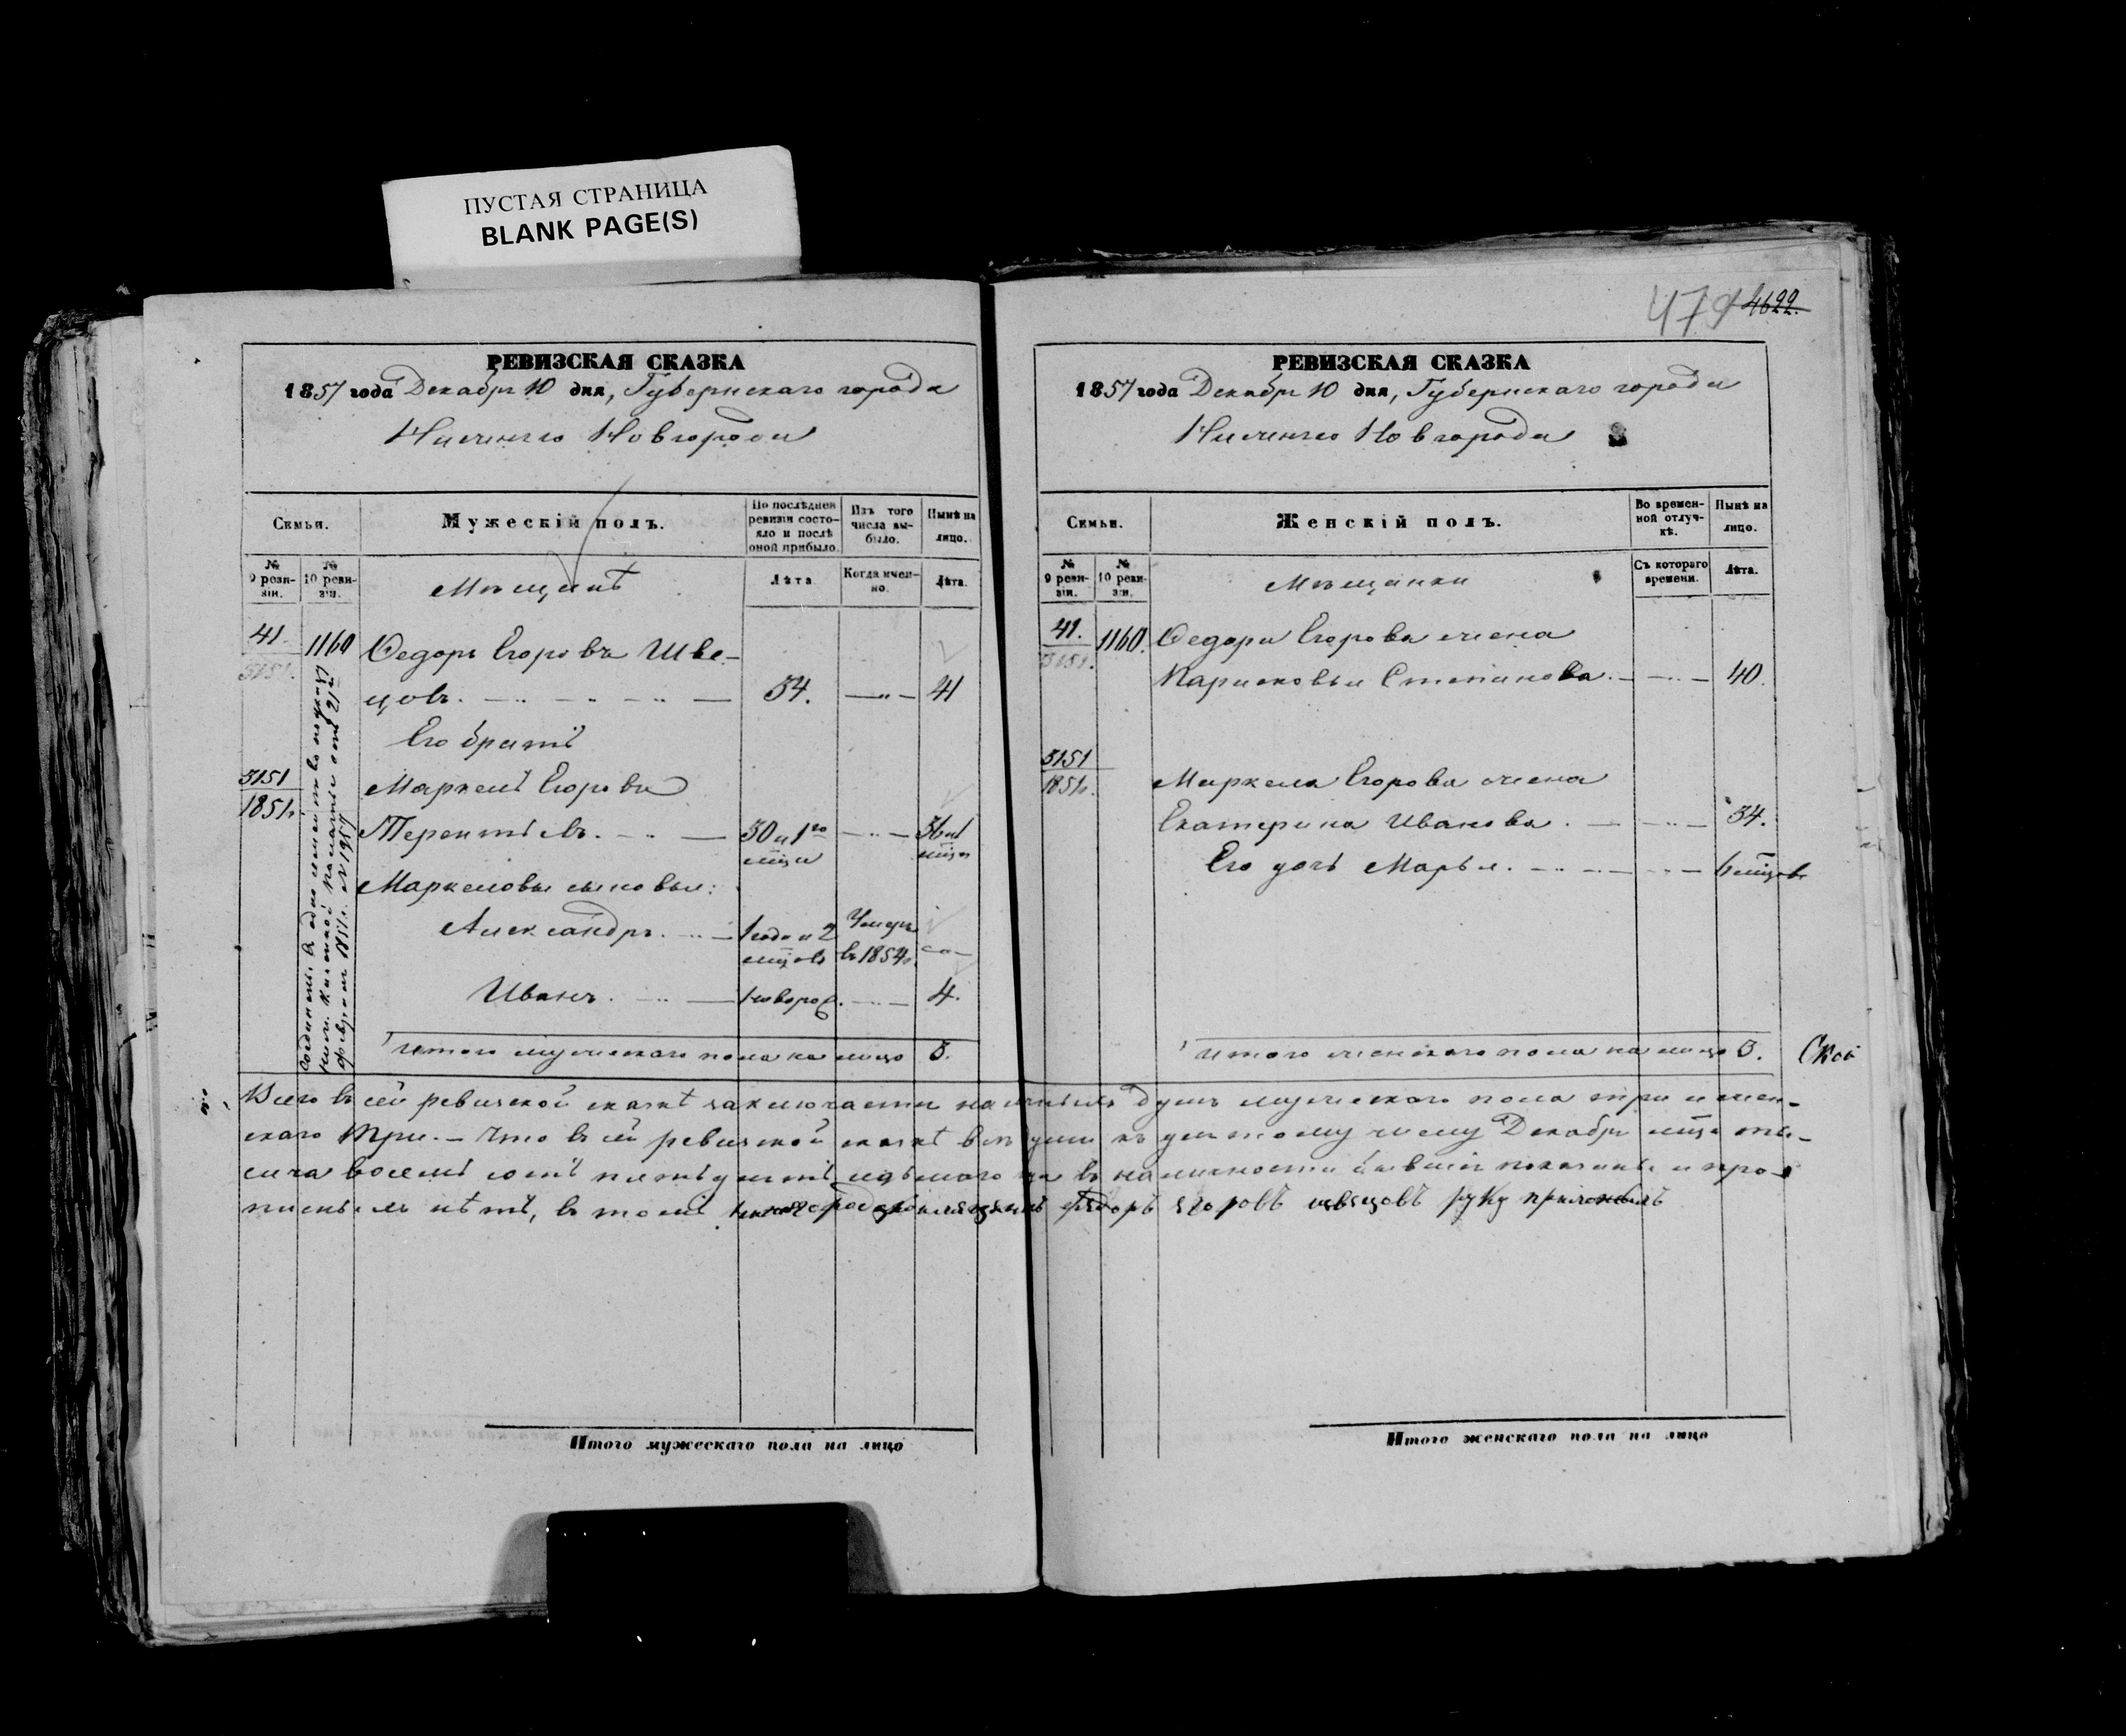 ПУСТАЯ СТРАНИЦА
BLANK PAGE(S)
РЕВИЗСКАЯ СКАЗКА
1857 года Декабря 10 дня, Губернскаго города
Нижняго Новгорода
Семьи.
Мужескій полъ.
По послѣдней ревизіи состояло и послѣ оной прибыло.
Изъ того числа выбыло.
Нынѣ на лицо.
№ 9 ревизіи.
№ 10 ревизіи.
Мѣщанѣ
Лѣта
Когда именно.
Лѣта.
41.
5151.
1160
Ѳедоръ Егоровъ Шве-
цовъ. 34. 41
Его братъ
5151
1851г.
Маркелъ Егоровъ
Терентьевъ. 30 и 1го мца 36 и 1 мца
Маркеловы сыновья:
Александръ. 1 года и 2 мцовъ Умеръ въ 1854г.
Иванъ. новорож. 4.
Соединены въ одно семейство по указу
Ниж. Казенной палаты отъ 21го
февраля 1851г. № 1957
Итого мужескаго пола на лицо 3.
479 4622.
РЕВИЗСКАЯ СКАЗКА
1857 года Декабря 10 дня, Губернскаго города
Нижняго Новгорода
Семьи.
Женскій полъ.
Во временной отлучкѣ.
Нынѣ на лицо.
№ 9 ревизіи.
№ 10 ревизіи.
Мѣщанки
Съ котораго времени.
Лѣта.
41.
5151.
1160.
Ѳедора Егорова жена
Парасковья Степанова. 40.
5151
1851г.
Маркела Егорова жена
Екатерина Иванова. 34.
Его дочь Марья. 6 мцовъ
Итого женскаго пола на лицо 3.
Всего въ сей ревизской сказкѣ заключается наличныхъ душъ мужескаго пола три и жен-
скаго три. — Что въ сей ревизской сказкѣ всѣ души къ десятому числу Декабря мца ты-
сяча восемь сотъ пятьдесятъ седьмого года въ наличности бывшія показаны и про-
писныхъ нѣтъ, въ томъ нижегородской мещанинъ Федоръ Егоровъ швецовъ руку приложилъ
Итого мужескаго пола на лицо
Итого женскаго пола на лицо